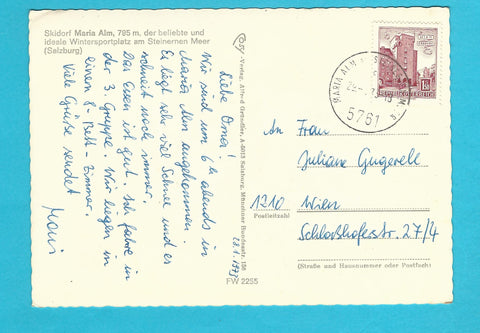 Skidorf Maria Alm, 795 m, der beliebte und
ideale Wintersportplatz am Steinernen Meer
(Salzburg)
Liebe Oma!
Wir sind um 6h abends in
Maria Alm angekommen.
Es liegt sehr viel Schnee und es
schneit noch immer.
Das Essen ist gut. Ich fahre in
der 3. Gruppe. Wir liegen in
einem 8-Bett-Zimmer.
Viele Grüße sendet
28.1.1973
Cosy-Verlag, Alfred Gründler, A-5013 Salzburg, Münchner Bundesstr. 156
FW 2255
MARIA ALM
5761
REPUBLIK ÖSTERREICH
An Frau
Juliane Gugerell
1210 Wien
Postleitzahl
Schloßhoferstr. 27/4
(Straße und Hausnummer oder Postfach)